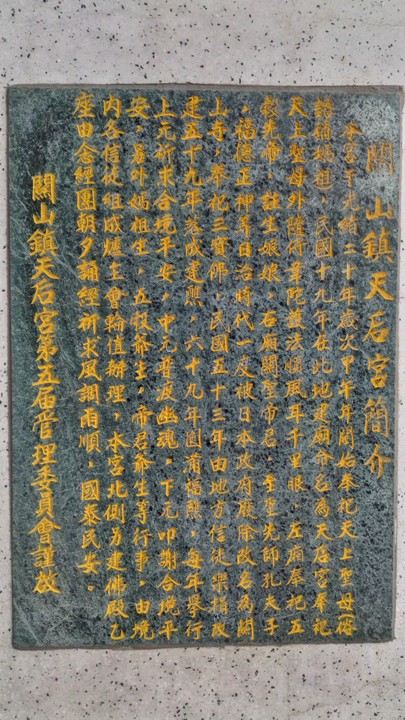 關山鎮天后宮簡介
本宮于光緒二十年歲次甲午年開始奉祀天上聖母(海
媽祖，民國十九年在此地建廟命名為天后宮奉祀
天上聖母外隨侍韋陀護法順風耳千里眼，左廂奉祀五
穀先帝，註生娘娘，右廂關聖帝君，孚聖先師孔夫子
，福德正神等日治時代一度被日本政府廢除改名為關
山寺，奉祀三寶佛，民國五十三年由地方信徒樂捐改
建五十九年落成建醮，六十九年圓滿福醮，每年舉行
上元祈求合境平安，中元普渡幽魂，下元叩謝合境平
安，另外媽祖生，五穀爺生，帝君爺生等行事，由境
內各信徒組成爐主會輪值辦理，本宮北側另建佛殿乙
座由念經團朝夕誦經祈求風調雨順，國泰民安。
關山鎮天后宮第五屆管理委員會謹啟